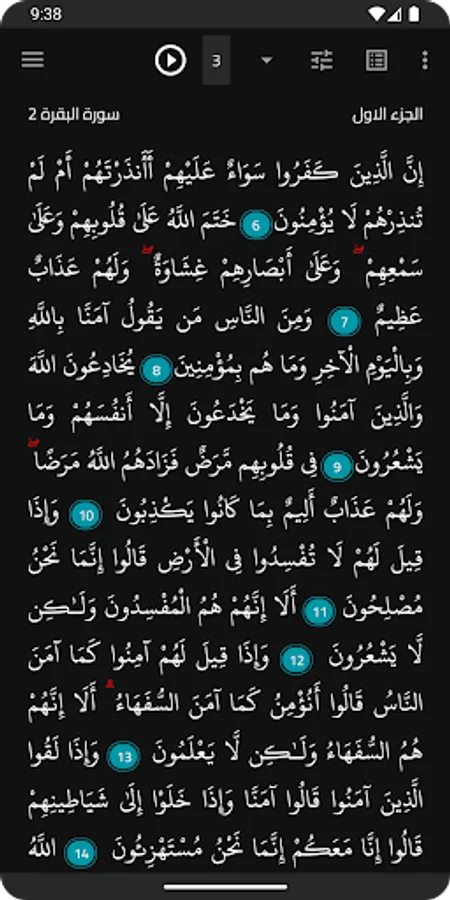 9:38
3
الجزء الاول
سورة البقرة 2
إِنَّ الَّذِينَ كَفَرُوا سَوَاءٌ عَلَيْهِمْ أَأَنذَرْتَهُمْ أَمْ لَمْ
تُنذِرْهُمْ لَا يُؤْمِنُونَ 6 خَتَمَ اللَّهُ عَلَىٰ قُلُوبِهِمْ وَعَلَىٰ
سَمْعِهِمْ ۖ وَعَلَىٰ أَبْصَارِهِمْ غِشَاوَةٌ ۖ وَلَهُمْ عَذَابٌ
عَظِيمٌ 7 وَمِنَ النَّاسِ مَن يَقُولُ آمَنَّا بِاللَّهِ
وَبِالْيَوْمِ الْآخِرِ وَمَا هُم بِمُؤْمِنِينَ 8 يُخَادِعُونَ اللَّهَ
وَالَّذِينَ آمَنُوا وَمَا يَخْدَعُونَ إِلَّا أَنفُسَهُمْ وَمَا
يَشْعُرُونَ 9 فِي قُلُوبِهِم مَّرَضٌ فَزَادَهُمُ اللَّهُ مَرَضًا ۖ
وَلَهُمْ عَذَابٌ أَلِيمٌ بِمَا كَانُوا يَكْذِبُونَ 10 وَإِذَا
قِيلَ لَهُمْ لَا تُفْسِدُوا فِي الْأَرْضِ قَالُوا إِنَّمَا نَحْنُ
مُصْلِحُونَ 11 أَلَا إِنَّهُمْ هُمُ الْمُفْسِدُونَ وَلَٰكِن
لَّا يَشْعُرُونَ 12 وَإِذَا قِيلَ لَهُمْ آمِنُوا كَمَا آمَنَ
النَّاسُ قَالُوا أَنُؤْمِنُ كَمَا آمَنَ السُّفَهَاءُ ۗ أَلَا إِنَّهُمْ
هُمُ السُّفَهَاءُ وَلَٰكِن لَّا يَعْلَمُونَ 13 وَإِذَا لَقُوا
الَّذِينَ آمَنُوا قَالُوا آمَنَّا وَإِذَا خَلَوْا إِلَىٰ شَيَاطِينِهِمْ
قَالُوا إِنَّا مَعَكُمْ إِنَّمَا نَحْنُ مُسْتَهْزِئُونَ 14 اللَّهُ